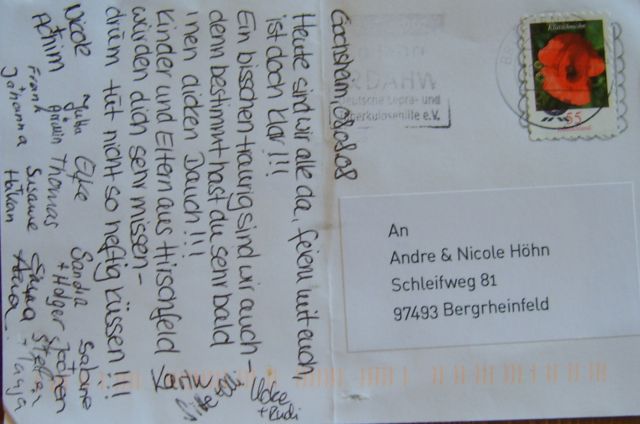 Gochsheim, 08.08.08
Heute sind wir alle da, feiern mit euch,
ist doch klar!!!
Ein bisschen traurig sind wir auch
denn bestimmt hast du sehr bald
inen dicken Bauch!!!
Kinder und Eltern aus Hirschfeld
würden dich sehr missen-
drum tut nicht so heftig küssen!!!
Nicole Jutta Elke Sandra Sabine
Achim Thomas + Holger Jochen
Frank Susanne Stefan
Johanna Håkan Anna Tanja
Karin
Udo
+ Rudi
Klatschmohn
55
Deutschland
DAHW
Deutsche Lepra- und
Tuberkulosehilfe e.V.
An
Andre & Nicole Höhn
Schleifweg 81
97493 Bergrheinfeld